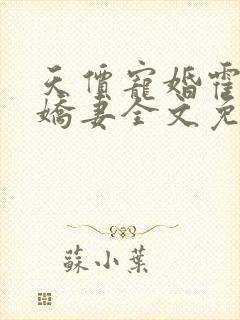 天價寵婚霍
嬌妻全文免
蘇小葉